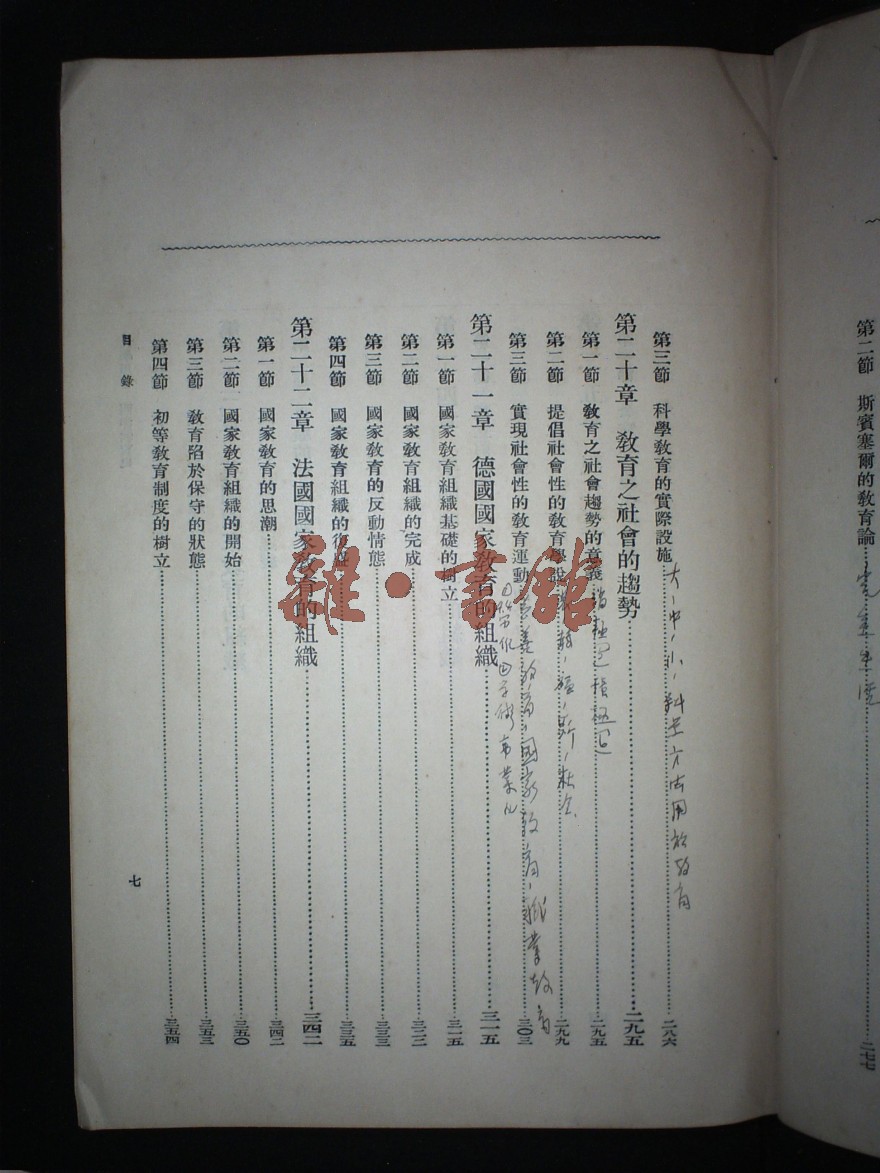 第二節　斯賓塞爾的教育論……二七七
第三節　科學教育的實際設施……二八六
大、中、小、科学方法用於教育
第二十章　教育之社會的趨勢……二九五
第一節　教育之社會趨勢的意義……二九五
第二節　提倡社會性的教育學說……二九九
第三節　實現社會性的教育運動……三〇三
國家教育、職業教育
第二十一章　德國國家教育的組織……三一五
第一節　國家教育組織基礎的樹立……三一五
第二節　國家教育組織的完成……三二二
第三節　國家教育的反動情態……三三三
第四節　國家教育組織的復盛……三三五
第二十二章　法國國家教育的組織……三四二
第一節　國家教育的思潮……三四二
第二節　國家教育組織的開始……三五〇
第三節　教育陷於保守的狀態……三五三
第四節　初等教育制度的樹立……三五四
目錄
七
雜·書館